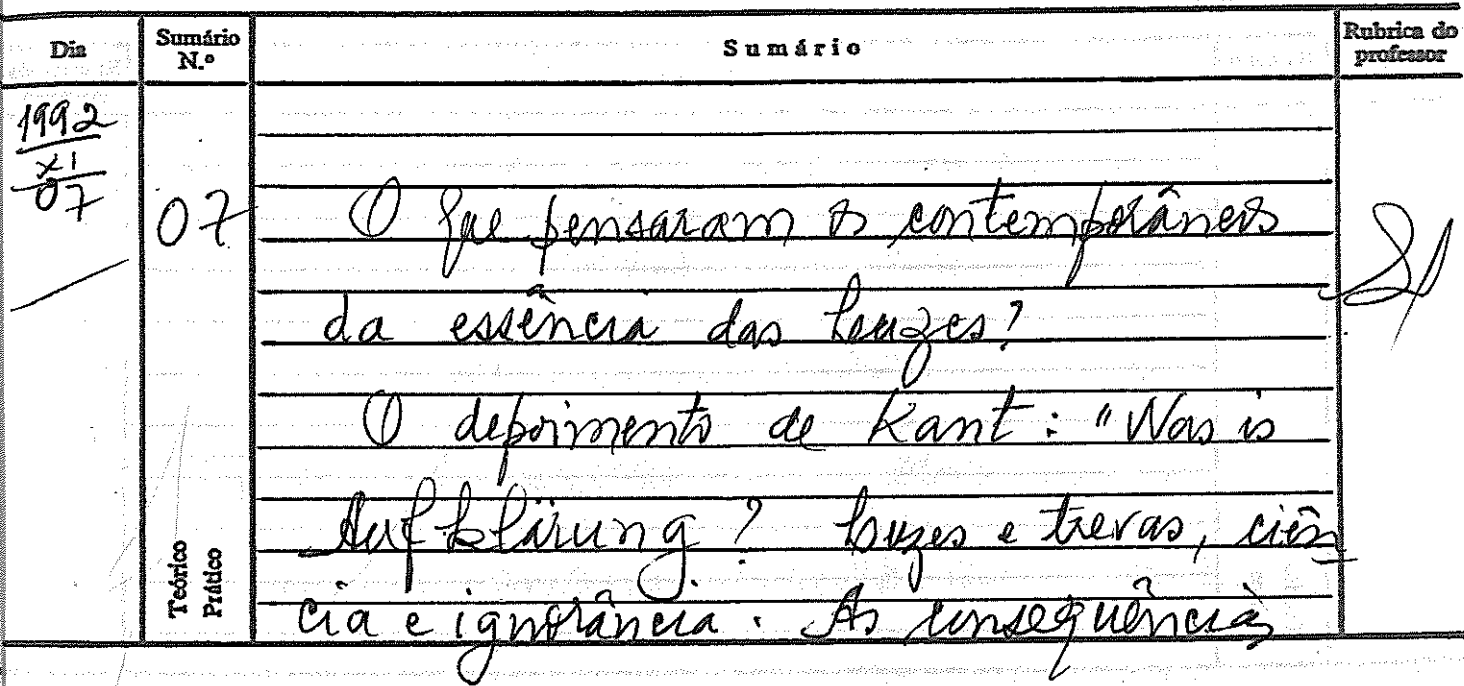 Dia
Sumário N.º
Sumário
Rubrica do professor
1992
XI
07
07
O que pensaram os contemporâneos
da essência das Luzes?
O depoimento de Kant: "Was is
Aufklärung? Luzes e trevas, ciên
cia e ignorância. As consequências
Teórico
Prático